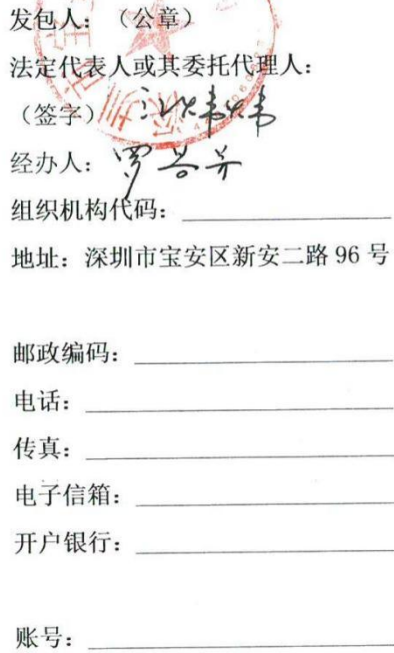 发包人：（公章）
法定代表人或其委托代理人：
（签字）
经办人：
组织机构代码：
地址：深圳市宝安区新安二路 96 号
邮政编码：
电话：
传真：
电子信箱：
开户银行：
账号：